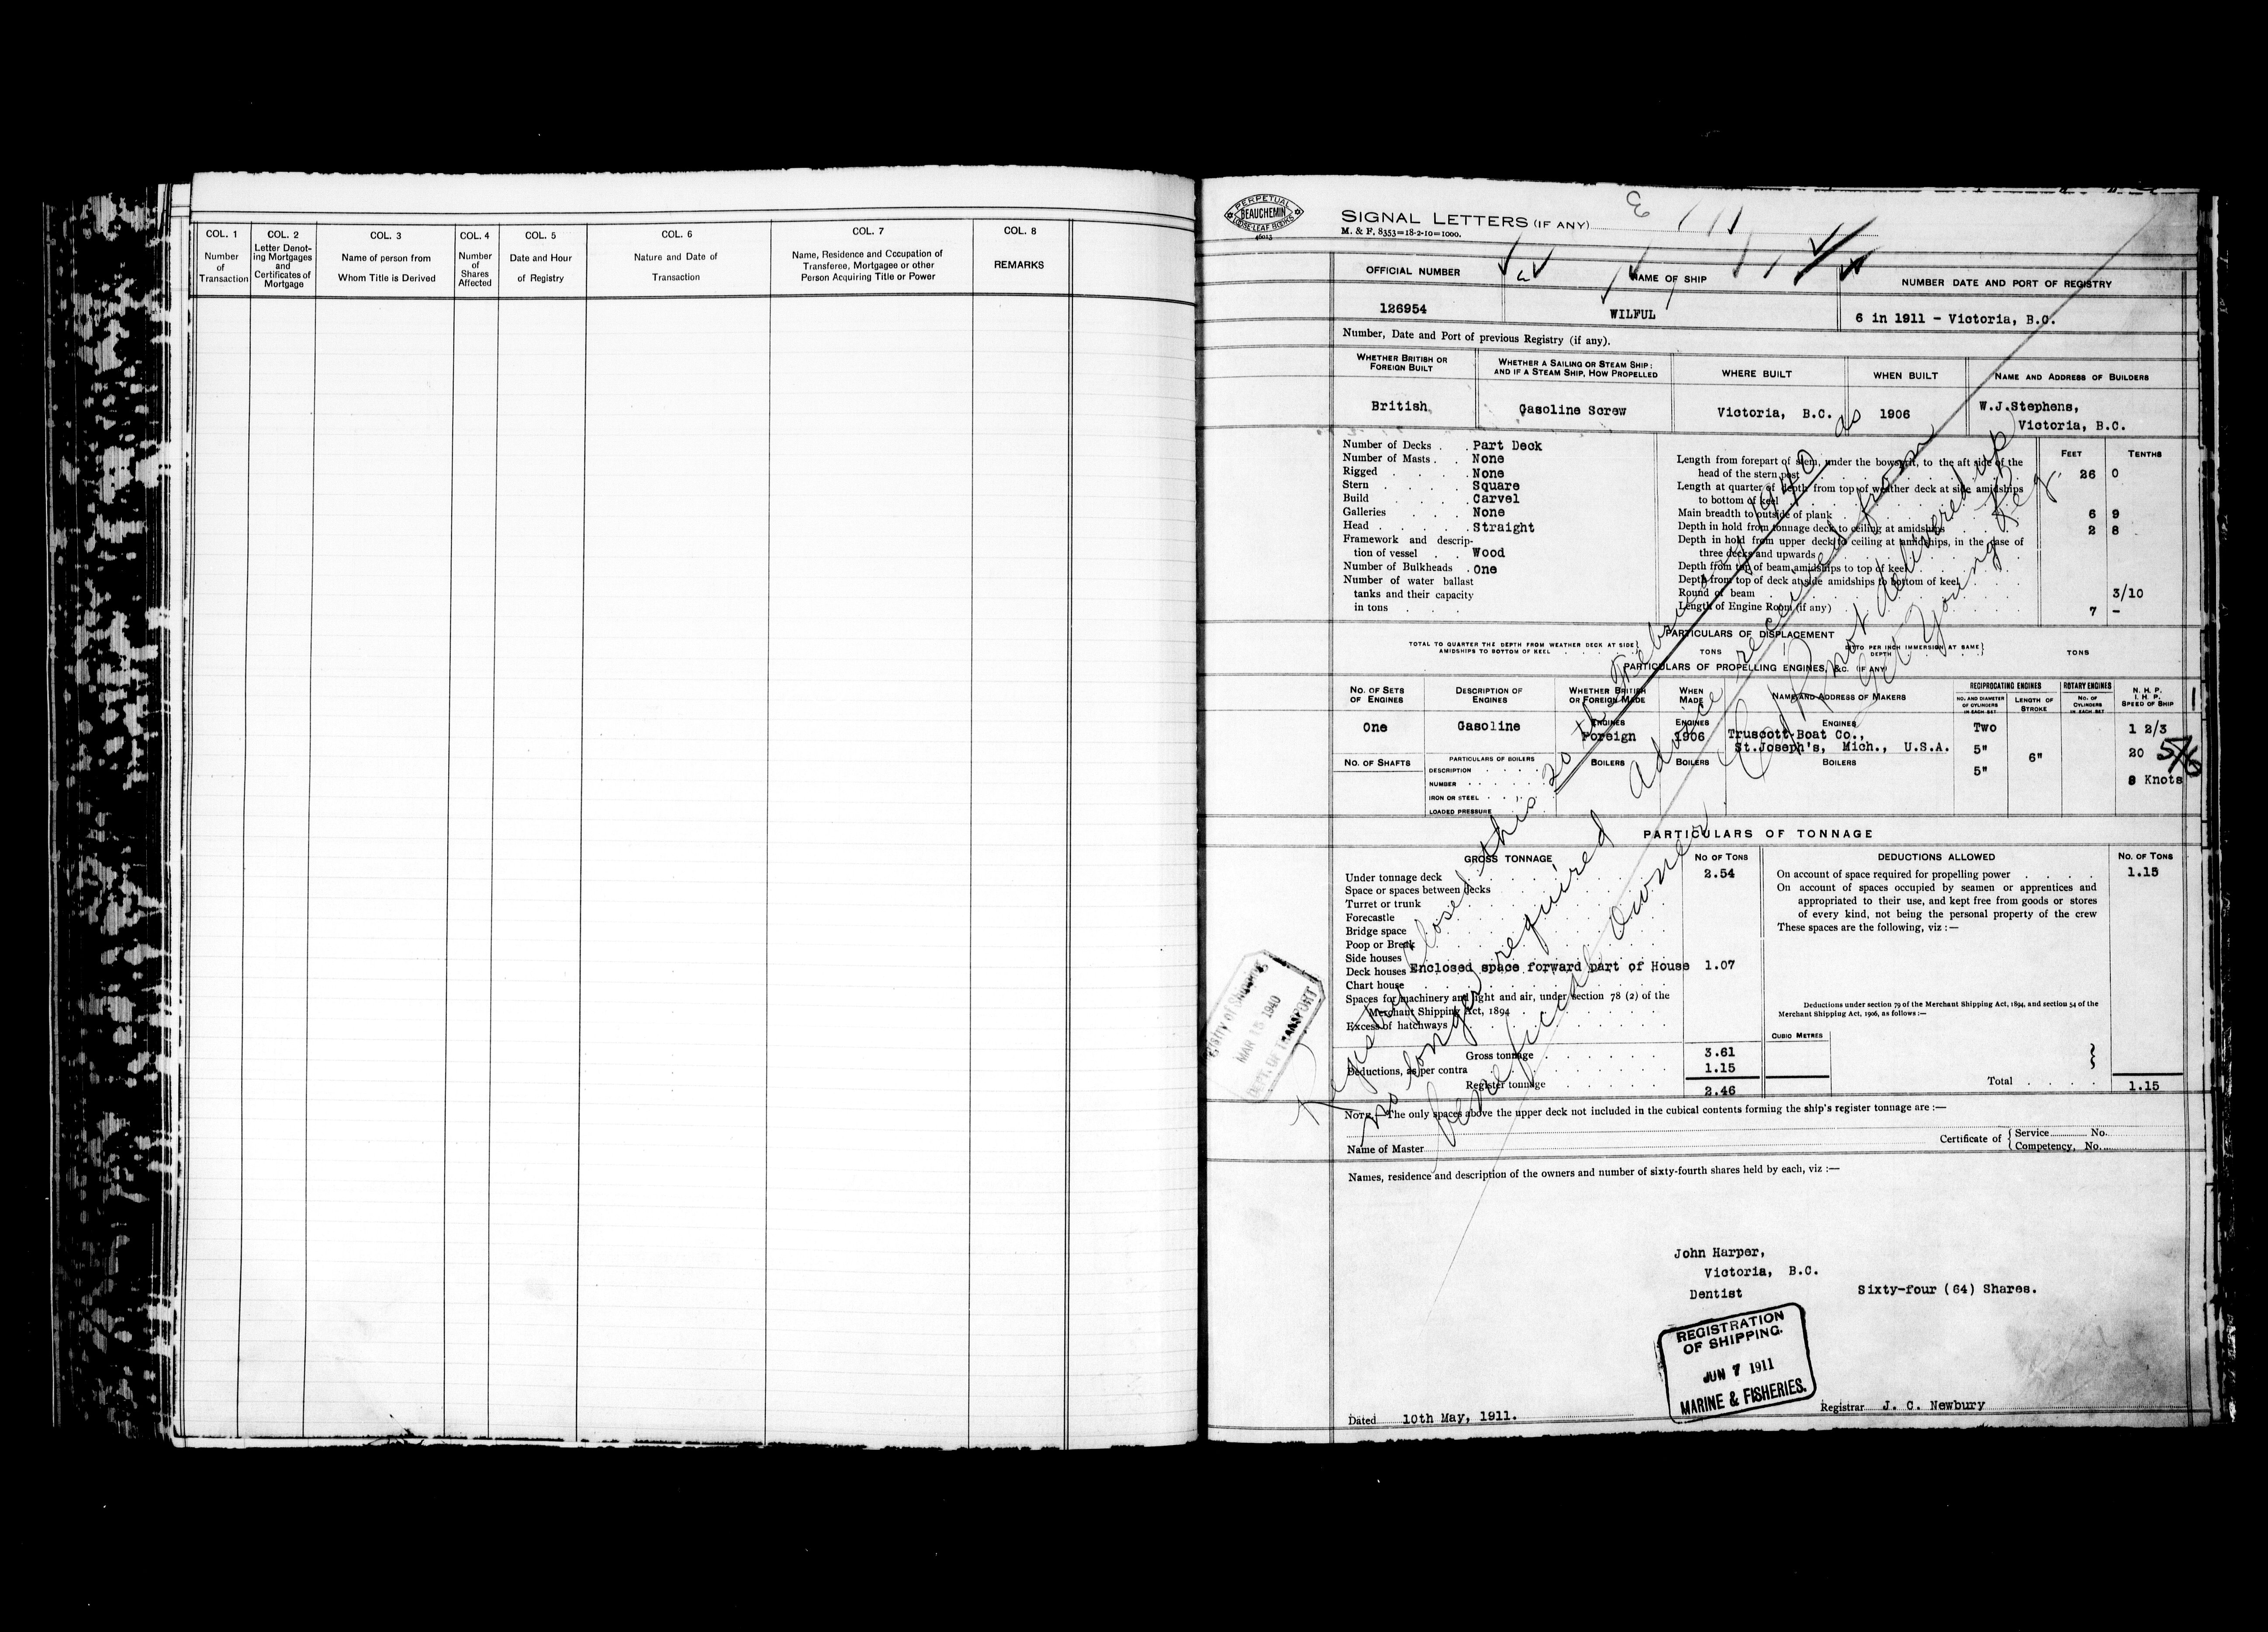 COL. 1
Number
of
Transaction
COL. 2
Letter Denot-
ing Mortgages
and
Certificates of
Mortgage
COL. 3
Name of person from
Whom Title is Derived
COL. 4
Number
of
Shares
Affected
COL. 5
Date and Hour
of Registry
COL. 6
Nature and Date of
Transaction
COL. 7
Name, Residence and Occupation of
Transferee, Mortgagee or other
Person Acquiring Title or Power
COL. 8
REMARKS
PERPETUAL
BEAUCHEMIN
LOOSE-LEAF BOOKS
SIGNAL LETTERS (IF ANY)
M. & F. 8353=18-2-10=1000.
OFFICIAL NUMBER
NAME OF SHIP
NUMBER DATE AND PORT OF REGISTRY
126954
WILFUL
6 in 1911 - Victoria, B.C.
Number, Date and Port of previous Registry (if any).
WHETHER BRITISH OR
FOREIGN BUILT
WHETHER A SAILING OR STEAM SHIP:
AND IF A STEAM SHIP, HOW PROPELLED
WHERE BUILT
WHEN BUILT
NAME AND ADDRESS OF BUILDERS
British
Gasoline Screw
Victoria, B.C.
1906
W.J.Stephens,
Victoria, B.C.
Number of Decks . . Part Deck
Number of Masts . . None
Rigged . . . . None
Stern . . . . Square
Build . . . . Carvel
Galleries . . . None
Head . . . . . Straight
Framework and descrip-
tion of vessel . . Wood
Number of Bulkheads . One
Number of water ballast
tanks and their capacity
in tons . . .
FEET TENTHS
Length from forepart of stem, under the bowsprit, to the aft side of the
head of the stern post 26 0
Length at quarter of depth from top of weather deck at side amidships
to bottom of keel
Main breadth to outside of plank 6 9
Depth in hold from tonnage deck to ceiling at amidships 2 8
Depth in hold from upper deck to ceiling at amidships, in the case of
three decks and upwards
Depth from top of beam amidships to top of keel
Depth from top of deck at side amidships to bottom of keel
Round of beam 3/10
Length of Engine Room (if any) 7 -
PARTICULARS OF DISPLACEMENT
TOTAL TO QUARTER THE DEPTH FROM WEATHER DECK AT SIDE
AMIDSHIPS TO BOTTOM OF KEEL
TONS
DITTO PER INCH IMMERSION AT SAME
DEPTH
TONS
PARTICULARS OF PROPELLING ENGINES, &C. (IF ANY)
NO. OF SETS
OF ENGINES
DESCRIPTION OF
ENGINES
WHETHER BRITISH
OR FOREIGN MADE
WHEN
MADE
NAME AND ADDRESS OF MAKERS
RECIPROCATING ENGINES
NO. AND DIAMETER
OF CYLINDERS
IN EACH SET
LENGTH OF
STROKE
ROTARY ENGINES
NO. OF
CYLINDERS
IN EACH SET
N. H. P.
I. H. P.
SPEED OF SHIP
One
Gasoline
ENGINES
Foreign
ENGINES
1906
ENGINES
Truscott Boat Co.,
St.Joseph's, Mich., U.S.A.
Two
5"
5"
6"
1 2/3
20
8 Knots
NO. OF SHAFTS
PARTICULARS OF BOILERS
DESCRIPTION
NUMBER
IRON OR STEEL
LOADED PRESSURE
BOILERS
BOILERS
BOILERS
PARTICULARS OF TONNAGE
GROSS TONNAGE
NO OF TONS
Under tonnage deck 2.54
Space or spaces between decks
Turret or trunk
Forecastle
Bridge space
Poop or Break
Side houses
Deck houses Enclosed space forward part of House 1.07
Chart house
Spaces for machinery and light and air, under section 78 (2) of the
Merchant Shipping Act, 1894
Excess of hatchways
Gross tonnage 3.61
Deductions, as per contra 1.15
Register tonnage 2.46
DEDUCTIONS ALLOWED
NO. OF TONS
On account of space required for propelling power 1.15
On account of spaces occupied by seamen or apprentices and
appropriated to their use, and kept free from goods or stores
of every kind, not being the personal property of the crew
These spaces are the following, viz :—
Deductions under section 79 of the Merchant Shipping Act, 1894, and section 54 of the
Merchant Shipping Act, 1906, as follows :—
CUBIC METRES
Total 1.15
NOTE.—The only spaces above the upper deck not included in the cubical contents forming the ship's register tonnage are :—
Name of Master
Certificate of
Service No.
Competency, No.
Names, residence and description of the owners and number of sixty-fourth shares held by each, viz :—
John Harper,
Victoria, B.C.
Dentist
Sixty-four (64) Shares.
REGISTRATION
OF SHIPPING.
JUN 7 1911
MARINE & FISHERIES.
Dated 10th May, 1911.
Registrar J. C. Newbury
Registry closed this 20th February 1940 as
no longer required advice received from
Beneficial Owner. not delivered up
Young Reg.
MAR 15 1940
DEPT. OF TRANSPORT